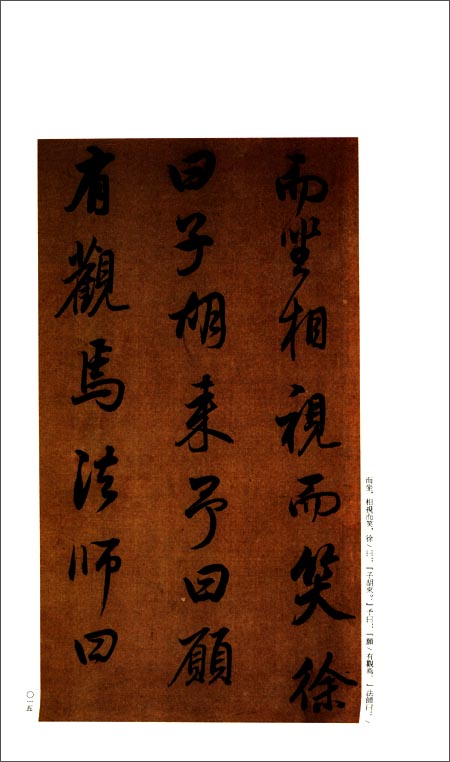 而坐相視而笑徐
曰子胡来予曰願
有觀焉法師曰
而坐，相視而笑，徐／曰：「子胡來？」予曰：「願／有觀焉。」法師曰：／
〇一五